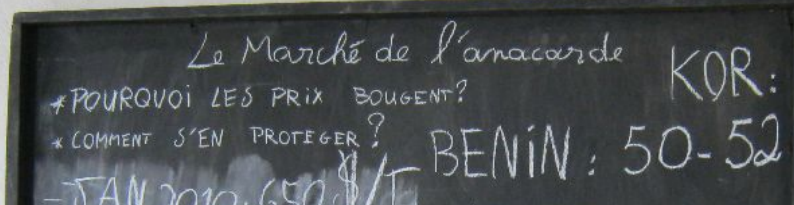 Le Marché de l'anacarde
KOR:
*POURQUOi LES PRiX BOUGENT?
* COMMENT S'EN PROTEGER?
BENiN: 50-52
- JAN 2010: 650 $/T